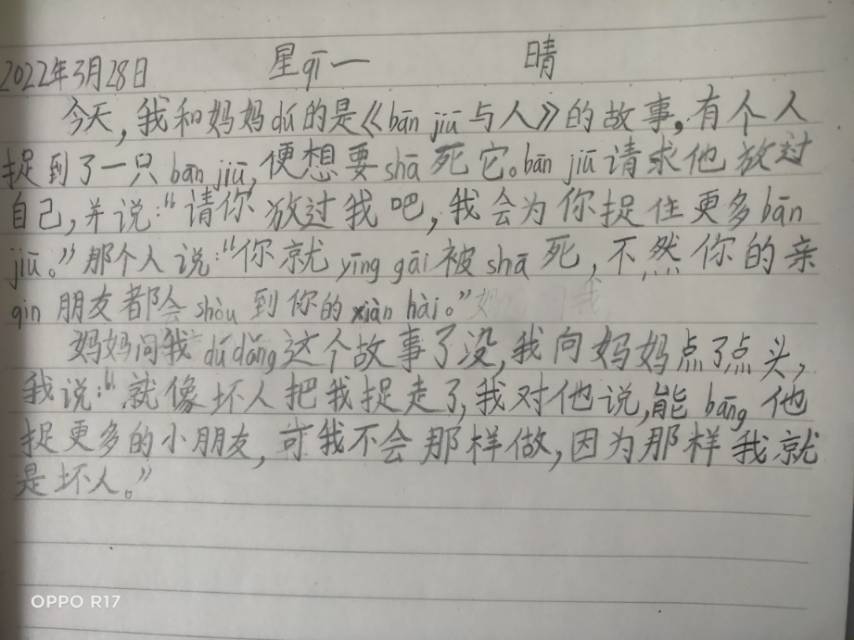 2022年3月28日 星qī一 晴
今天,我和妈妈dú的是《bān jiū与人》的故事,有个人
捉到了一只bān jiū,便想要shā死它。bān jiū请求他放过
自己,并说:“请你放过我吧,我会为你捉住更多bān
jiū。”那个人说:“你就yīng gāi被shā死,不然你的亲
qin朋友都会shòu到你的xiàn hài。”
妈妈问我dú dǒng这个故事了没,我向妈妈点了点头,
我说:“就像坏人把我捉走了,我对他说,能bāng他
捉更多的小朋友,可我不会那样做,因为那样我就
是坏人。”
OPPO R17